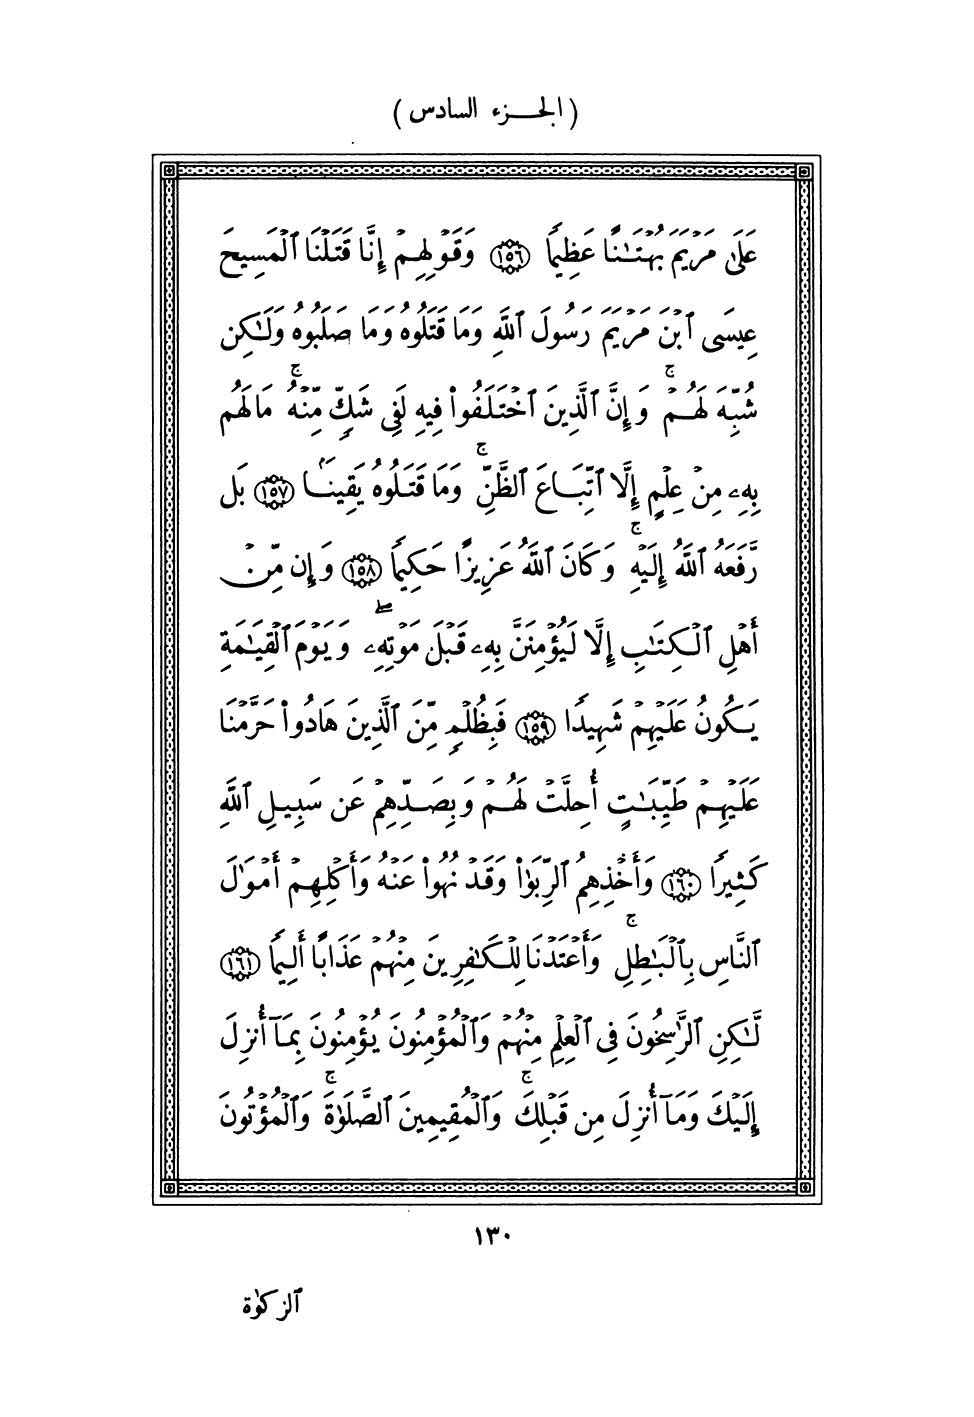 (الجزء السادس)
عَلَىٰ مَرْيَمَ بُهْتَـٰنًا عَظِيمًا ١٥٦ وَقَوْلِهِمْ إِنَّا قَتَلْنَا ٱلْمَسِيحَ
عِيسَى ٱبْنَ مَرْيَمَ رَسُولَ ٱللَّهِ وَمَا قَتَلُوهُ وَمَا صَلَبُوهُ وَلَـٰكِن
شُبِّهَ لَهُمْ ۚ وَإِنَّ ٱلَّذِينَ ٱخْتَلَفُوا۟ فِيهِ لَفِى شَكٍّ مِّنْهُ ۚ مَا لَهُم
بِهِۦ مِنْ عِلْمٍ إِلَّا ٱتِّبَاعَ ٱلظَّنِّ ۚ وَمَا قَتَلُوهُ يَقِينًۢا ١٥٧ بَل
رَّفَعَهُ ٱللَّهُ إِلَيْهِ ۚ وَكَانَ ٱللَّهُ عَزِيزًا حَكِيمًا ١٥٨ وَإِن مِّنْ
أَهْلِ ٱلْكِتَـٰبِ إِلَّا لَيُؤْمِنَنَّ بِهِۦ قَبْلَ مَوْتِهِۦ ۖ وَيَوْمَ ٱلْقِيَـٰمَةِ
يَكُونُ عَلَيْهِمْ شَهِيدًا ١٥٩ فَبِظُلْمٍ مِّنَ ٱلَّذِينَ هَادُوا۟ حَرَّمْنَا
عَلَيْهِمْ طَيِّبَـٰتٍ أُحِلَّتْ لَهُمْ وَبِصَدِّهِمْ عَن سَبِيلِ ٱللَّهِ
كَثِيرًا ١٦٠ وَأَخْذِهِمُ ٱلرِّبَوٰا۟ وَقَدْ نُهُوا۟ عَنْهُ وَأَكْلِهِمْ أَمْوَٰلَ
ٱلنَّاسِ بِٱلْبَـٰطِلِ ۚ وَأَعْتَدْنَا لِلْكَـٰفِرِينَ مِنْهُمْ عَذَابًا أَلِيمًا ١٦١
لَّـٰكِنِ ٱلرَّٰسِخُونَ فِى ٱلْعِلْمِ مِنْهُمْ وَٱلْمُؤْمِنُونَ يُؤْمِنُونَ بِمَآ أُنزِلَ
إِلَيْكَ وَمَآ أُنزِلَ مِن قَبْلِكَ ۚ وَٱلْمُقِيمِينَ ٱلصَّلَوٰةَ ۚ وَٱلْمُؤْتُونَ
١٣٠
ٱلزكوٰة